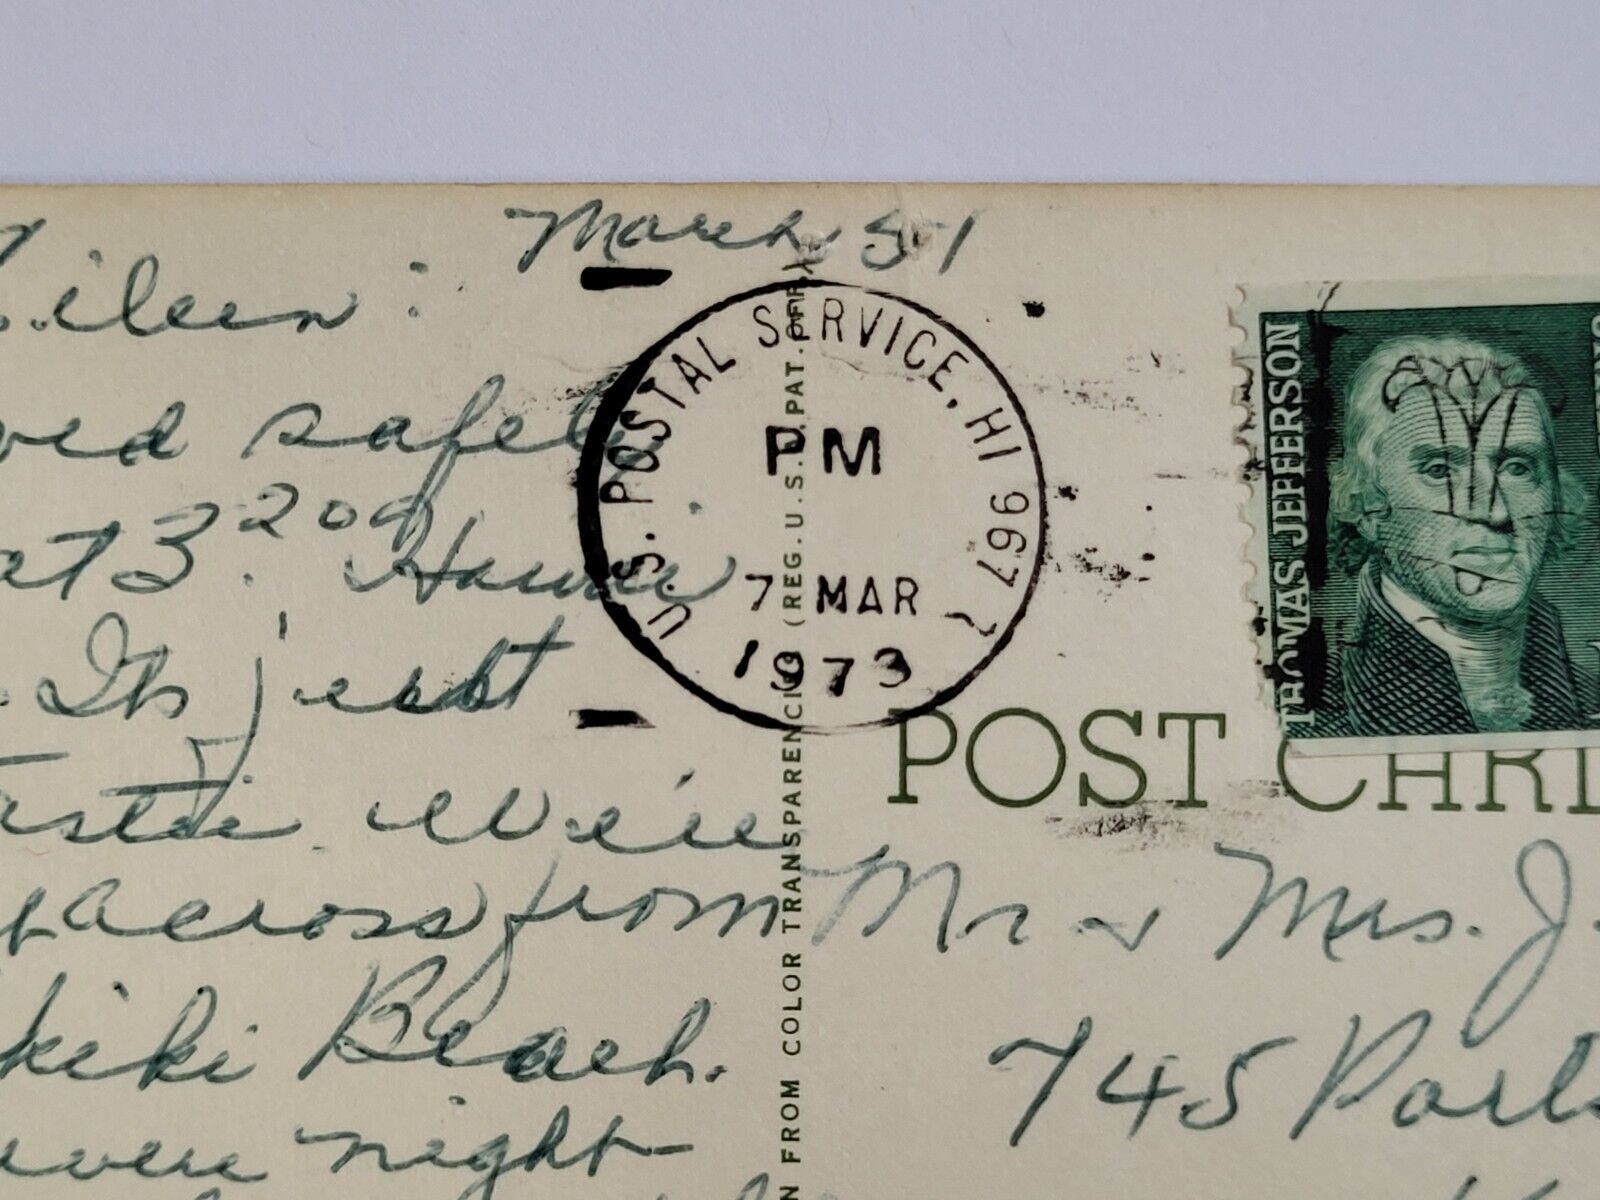 March 5-1
Eileen:
safely
at 3 20 Hawaii
Its just
We're
across from
Beach.
were night
U.S. POSTAL SERVICE, HI 967
PM
7 MAR
1973
N FROM COLOR TRANSPARENCIES (REG. U.S. PAT. OFF.)
THOMAS JEFFERSON
POST CARD
Mr & Mrs. J.
745